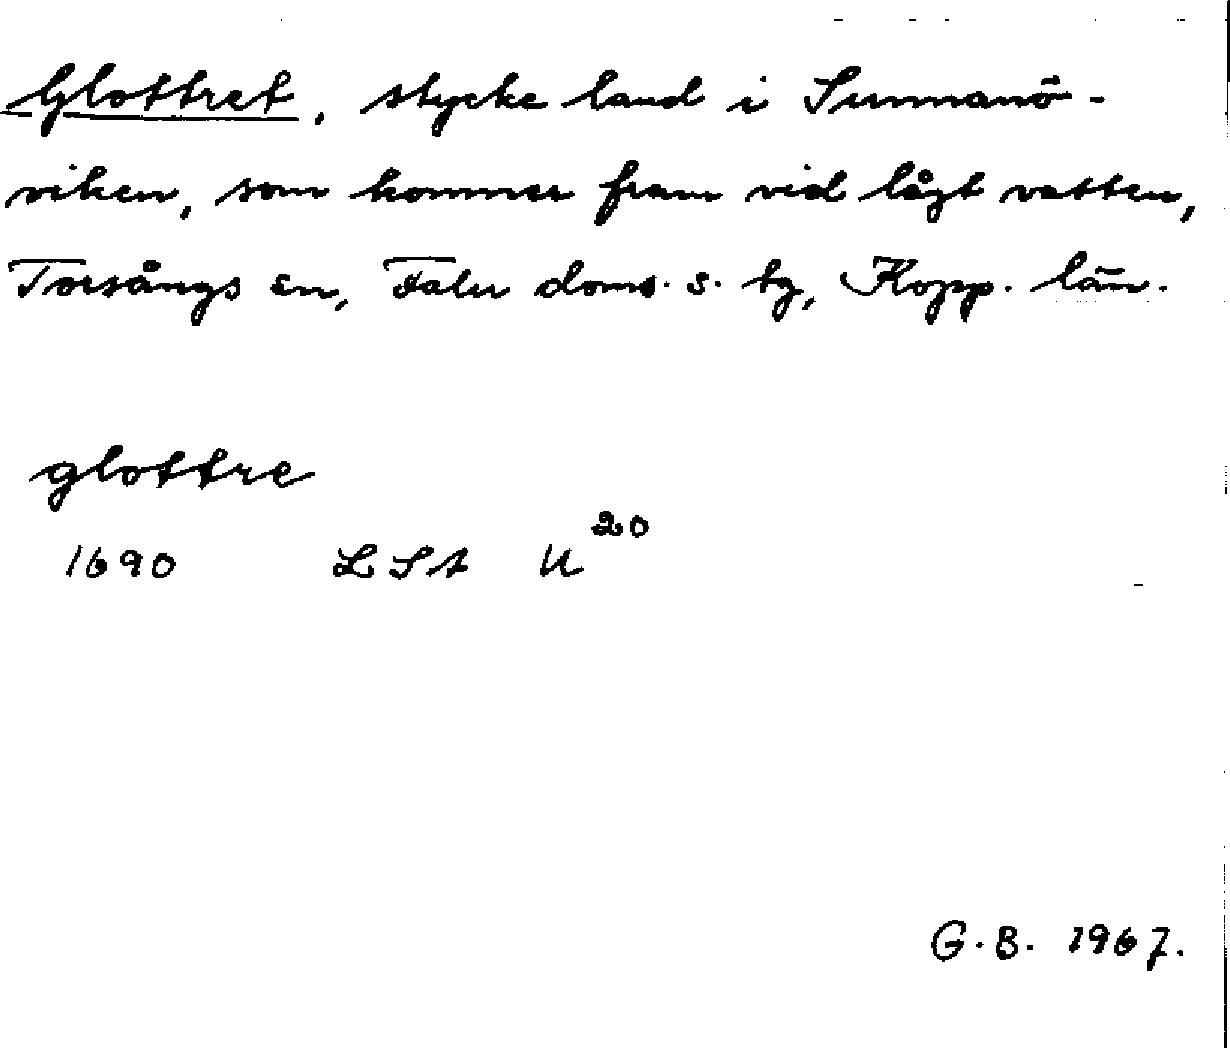 Glottret, stycke land i Sunnanö-
viken, som kommer fram vid lågt vatten,
Torsångs sn, Falu doms. s. tg, Kopp. län.
glottre
1690 LSt U²⁰
G.B. 1967.